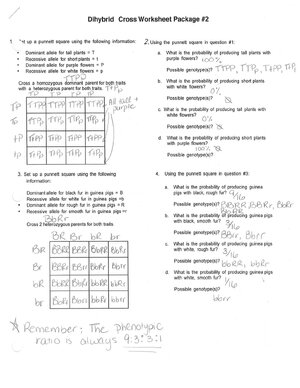 Dihybrid Cross Worksheet Package #2
1. Set up a punnett square using the following information:
Dominant allele for tall plants = T
Recessive allele for short plants = t
Dominant allele for purple flowers = P
Recessive allele for white flowers = p
Cross a homozygous dominant parent for both traits
with a heterozygous parent for both traits
All tall +
purple
2. Using the punnett square in question #1:
a. What is the probability of producing tall plants with
purple flowers? 100%
Possible genotype(s)?
b. What is the probability of producing short plants
with white flowers? 0%
Possible genotype(s)?
c. What is the probability of producing tall plants with
white flowers? 0%
Possible genotype(s)?
d. What is the probability of producing short plants
with purple flowers?
Possible genotype(s)?
3. Set up a punnett square using the following
information:
Dominant allele for black fur in guinea pigs = B
Recessive allele for white fur in guinea pigs =b
Dominant allele for rough fur in guinea pigs = R
Recessive allele for smooth fur in guinea pigs =r
BbRr
Cross 2 heterozygous parents for both traits
BR Br bR br
BR BBRR BBRr BbRR BbRr
Br BBRr BBrr BbRr Bbrr
bR BbRR BbRr bbRR bbRr
br BbRr Bbrr bbRr bbrr
4. Using the punnett square in question #3:
a. What is the probability of producing guinea
pigs with black, rough fur? 9/16
Possible genotype(s)? BBRR, BBRr, BbRR,
BbRr
b. What is the probability of producing guinea pigs
with black, smooth fur? 3/16
Possible genotype(s)? BBrr, Bbrr
c. What is the probability of producing guinea pigs
with white, rough fur? 3/16
Possible genotype(s)? bbRR, bbRr
d. What is the probability of producing guinea pigs
with white, smooth fur? 1/16
Possible genotype(s)?
bbrr
Remember: The phenotypic
ratio is always 9:3:3:1